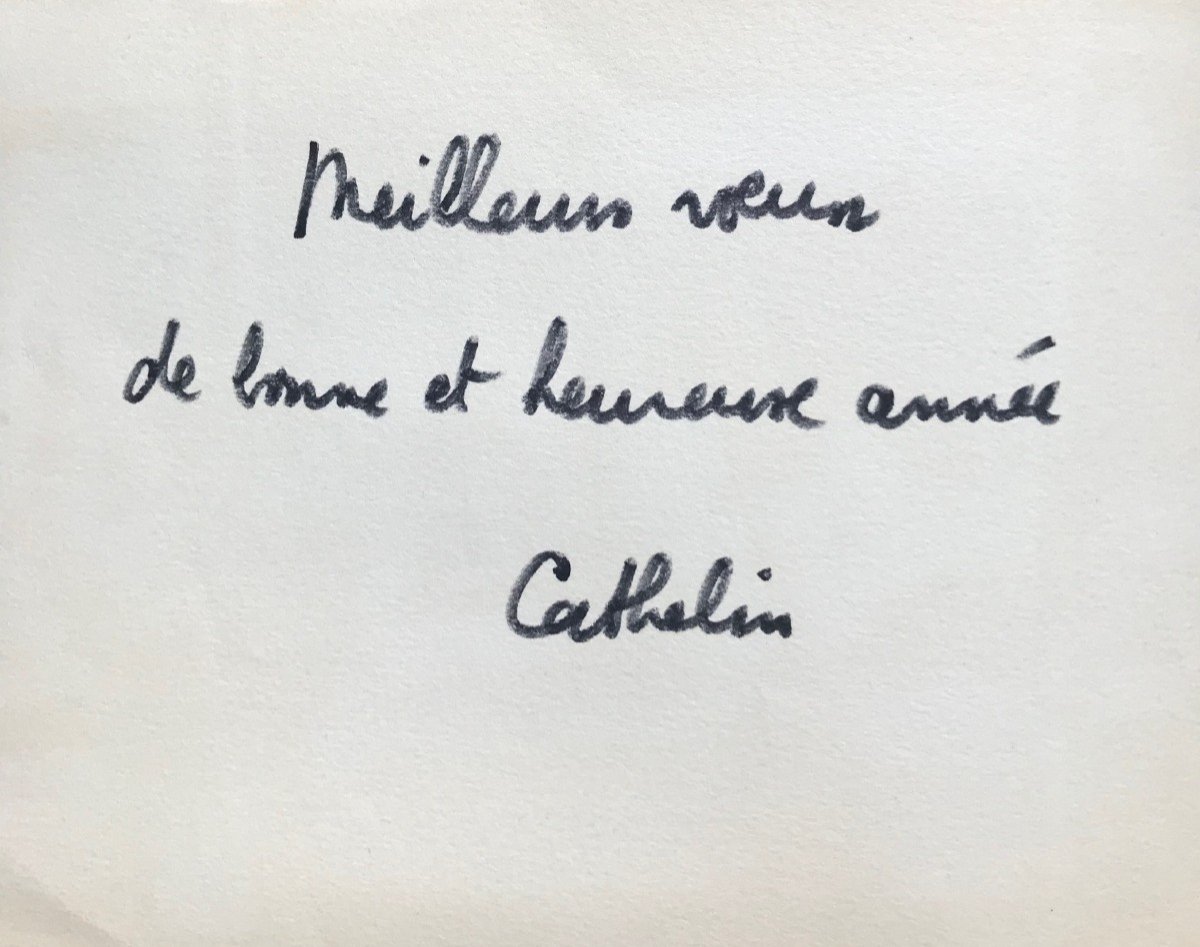 Meilleurs vœux
de bonne et heureuse année
Cathelin